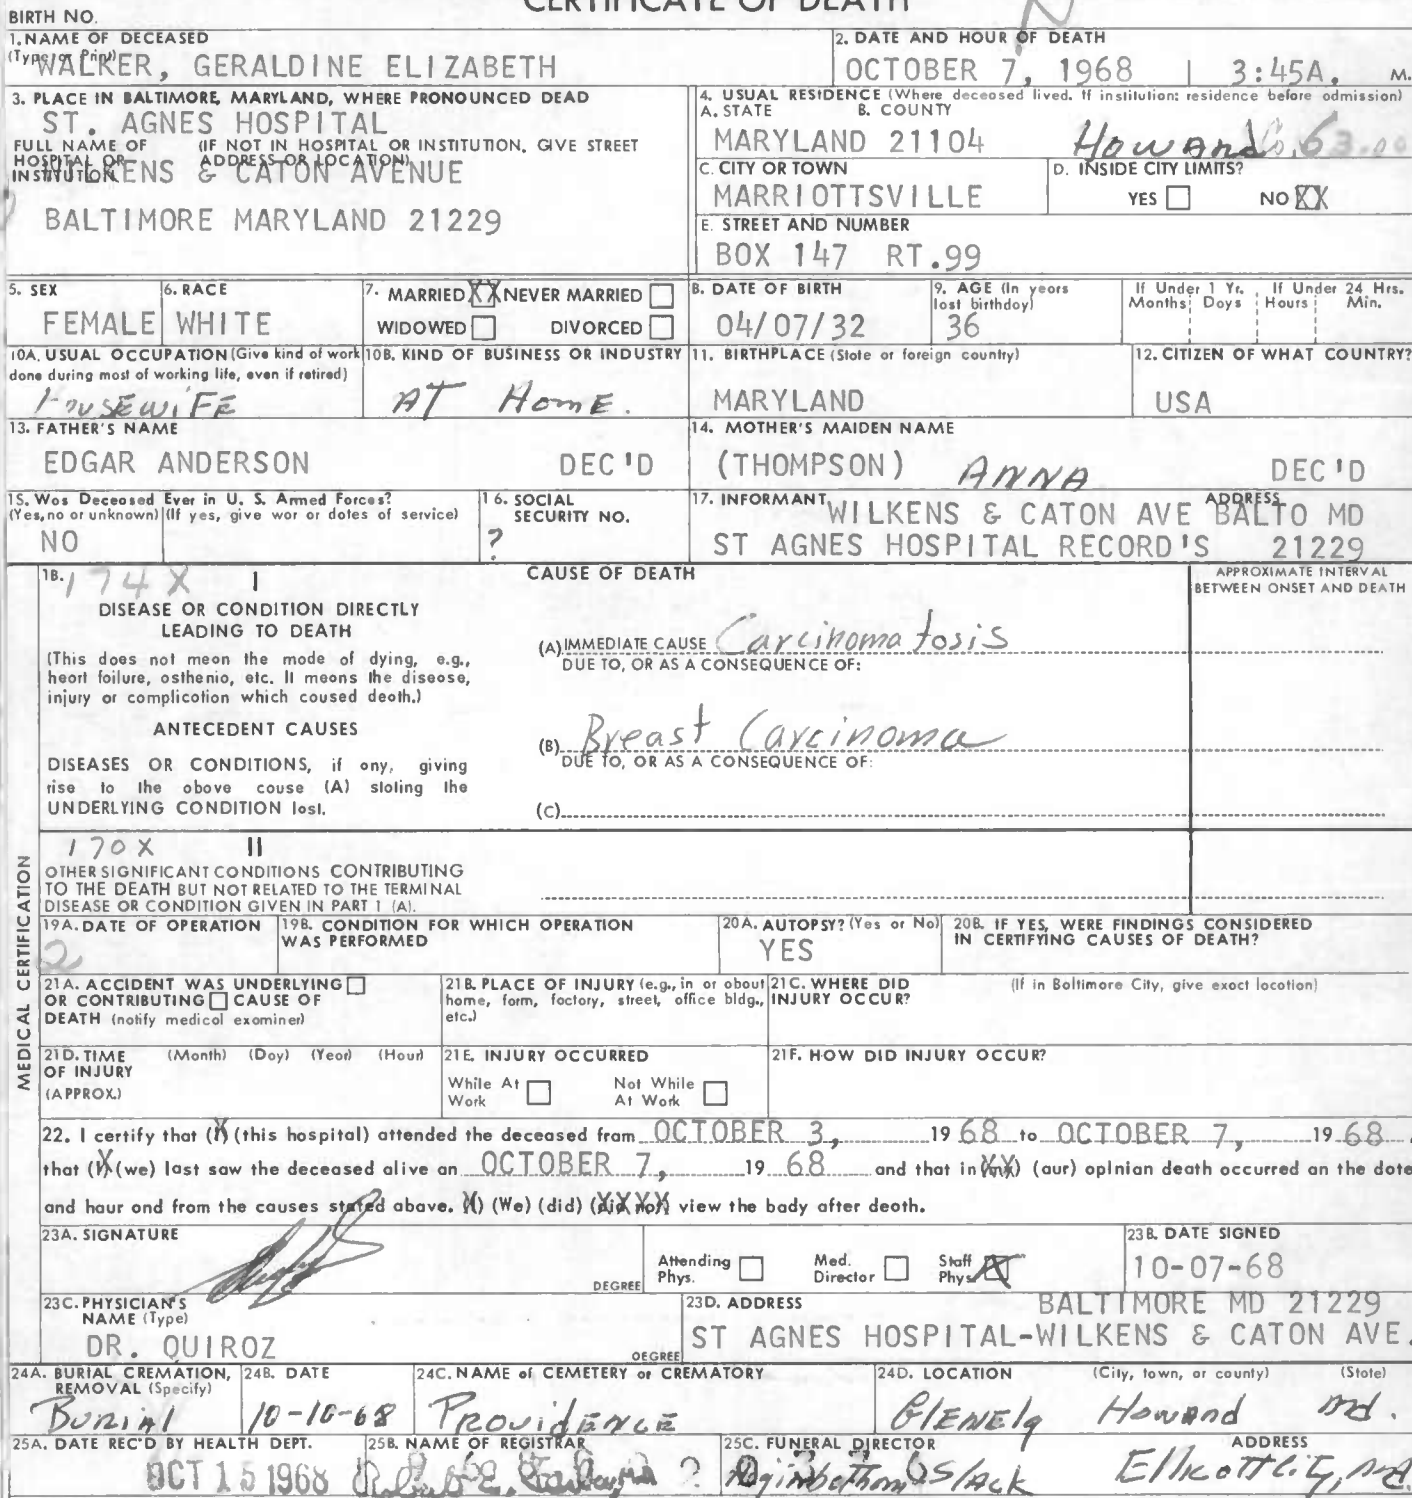 CERTIFICATE OF DEATH
BIRTH NO.
1. NAME OF DECEASED
(Type or Print)
WALKER, GERALDINE ELIZABETH
2. DATE AND HOUR OF DEATH
OCTOBER 7, 1968 | 3:45A. M.
3. PLACE IN BALTIMORE, MARYLAND, WHERE PRONOUNCED DEAD
ST. AGNES HOSPITAL
FULL NAME OF HOSPITAL OR INSTITUTION
(IF NOT IN HOSPITAL OR INSTITUTION, GIVE STREET ADDRESS OR LOCATION)
WILKENS & CATON AVENUE
BALTIMORE MARYLAND 21229
4. USUAL RESIDENCE (Where deceased lived. If institution: residence before admission)
A. STATE B. COUNTY
MARYLAND 21104 Howard Co. 63.00
C. CITY OR TOWN
MARRIOTTSVILLE
D. INSIDE CITY LIMITS?
YES NO XX
E. STREET AND NUMBER
BOX 147 RT.99
5. SEX
FEMALE
6. RACE
WHITE
7. MARRIED XX NEVER MARRIED
WIDOWED DIVORCED
8. DATE OF BIRTH
04/07/32
9. AGE (In years last birthday)
36
If Under 1 Yr. If Under 24 Hrs.
Months Days Hours Min.
10A. USUAL OCCUPATION (Give kind of work done during most of working life, even if retired)
HOUSEWIFE
10B. KIND OF BUSINESS OR INDUSTRY
AT HOME.
11. BIRTHPLACE (State or foreign country)
MARYLAND
12. CITIZEN OF WHAT COUNTRY?
USA
13. FATHER'S NAME
EDGAR ANDERSON DEC'D
14. MOTHER'S MAIDEN NAME
(THOMPSON) ANNA DEC'D
15. Was Deceased Ever in U. S. Armed Forces?
(Yes, no or unknown) (If yes, give war or dates of service)
NO
16. SOCIAL SECURITY NO.
?
17. INFORMANT ADDRESS
WILKENS & CATON AVE BALTO MD
ST AGNES HOSPITAL RECORD'S 21229
MEDICAL CERTIFICATION
18. 174X I
CAUSE OF DEATH
APPROXIMATE INTERVAL BETWEEN ONSET AND DEATH
DISEASE OR CONDITION DIRECTLY
LEADING TO DEATH
(This does not mean the mode of dying, e.g.,
heart failure, asthenia, etc. It means the disease,
injury or complication which caused death.)
(A) IMMEDIATE CAUSE Carcinomatosis
DUE TO, OR AS A CONSEQUENCE OF:
ANTECEDENT CAUSES
DISEASES OR CONDITIONS, if any, giving
rise to the above cause (A) stating the
UNDERLYING CONDITION last.
(B) Breast Carcinoma
DUE TO, OR AS A CONSEQUENCE OF:
(C)
170X II
OTHER SIGNIFICANT CONDITIONS CONTRIBUTING
TO THE DEATH BUT NOT RELATED TO THE TERMINAL
DISEASE OR CONDITION GIVEN IN PART 1 (A).
19A. DATE OF OPERATION
2
19B. CONDITION FOR WHICH OPERATION WAS PERFORMED
20A. AUTOPSY? (Yes or No)
YES
20B. IF YES, WERE FINDINGS CONSIDERED IN CERTIFYING CAUSES OF DEATH?
21A. ACCIDENT WAS UNDERLYING
OR CONTRIBUTING CAUSE OF
DEATH (notify medical examiner)
21B. PLACE OF INJURY (e.g., in or about home, farm, factory, street, office bldg., etc.)
21C. WHERE DID INJURY OCCUR?
(If in Baltimore City, give exact location)
21D. TIME OF INJURY (APPROX.)
(Month) (Day) (Year) (Hour)
21E. INJURY OCCURRED
While At Work Not While At Work
21F. HOW DID INJURY OCCUR?
22. I certify that (X) (this hospital) attended the deceased from OCTOBER 3, 1968 to OCTOBER 7, 1968.
that (X) (we) last saw the deceased alive on OCTOBER 7, 1968 and that in (XX) (our) opinion death occurred on the date
and hour and from the causes stated above. (X) (We) (did) (did not) view the body after death.
23A. SIGNATURE
DEGREE
Attending Phys. Med. Director Staff Phys. X
23B. DATE SIGNED
10-07-68
23C. PHYSICIAN'S NAME (Type)
DR. QUIROZ
DEGREE
23D. ADDRESS
BALTIMORE MD 21229
ST AGNES HOSPITAL-WILKENS & CATON AVE.
24A. BURIAL CREMATION, REMOVAL (Specify)
Burial
24B. DATE
10-10-68
24C. NAME of CEMETERY or CREMATORY
Providence
24D. LOCATION (City, town, or county) (State)
Glenelg Howard Md.
25A. DATE REC'D BY HEALTH DEPT.
OCT 15 1968
25B. NAME OF REGISTRAR
25C. FUNERAL DIRECTOR
Higinbothom Slack
ADDRESS
Ellicott City, Md.